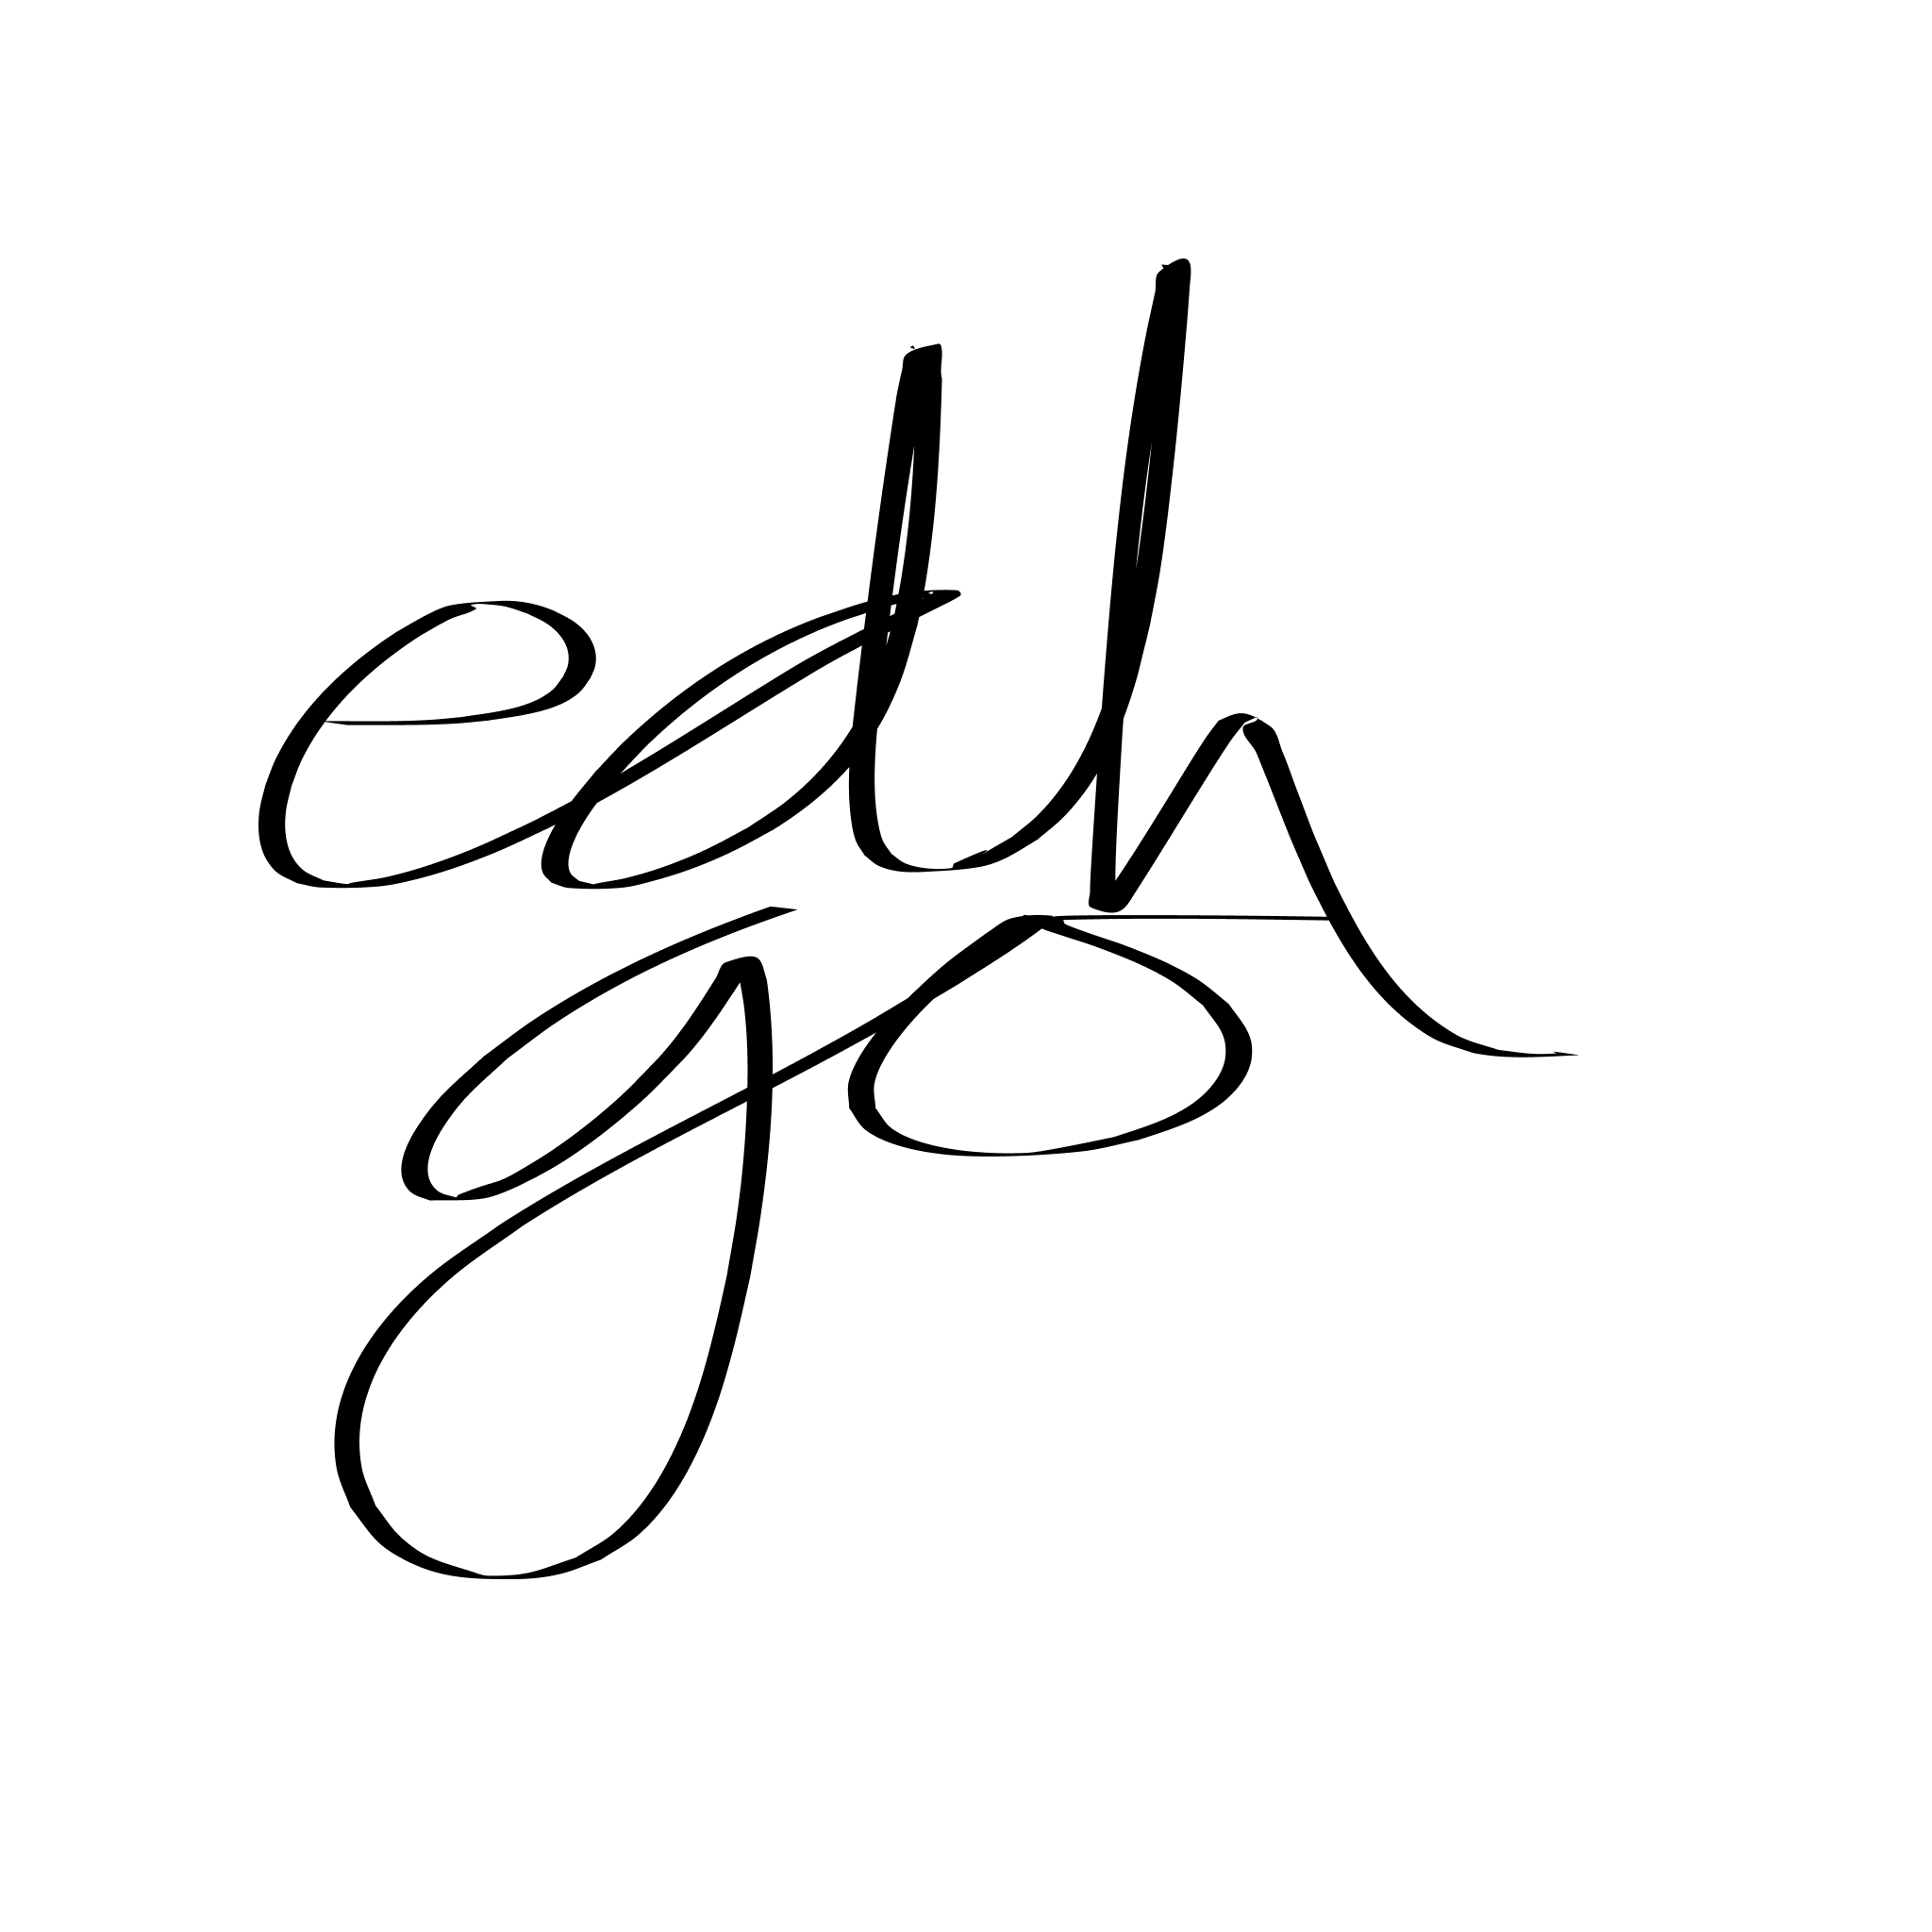 edh
go